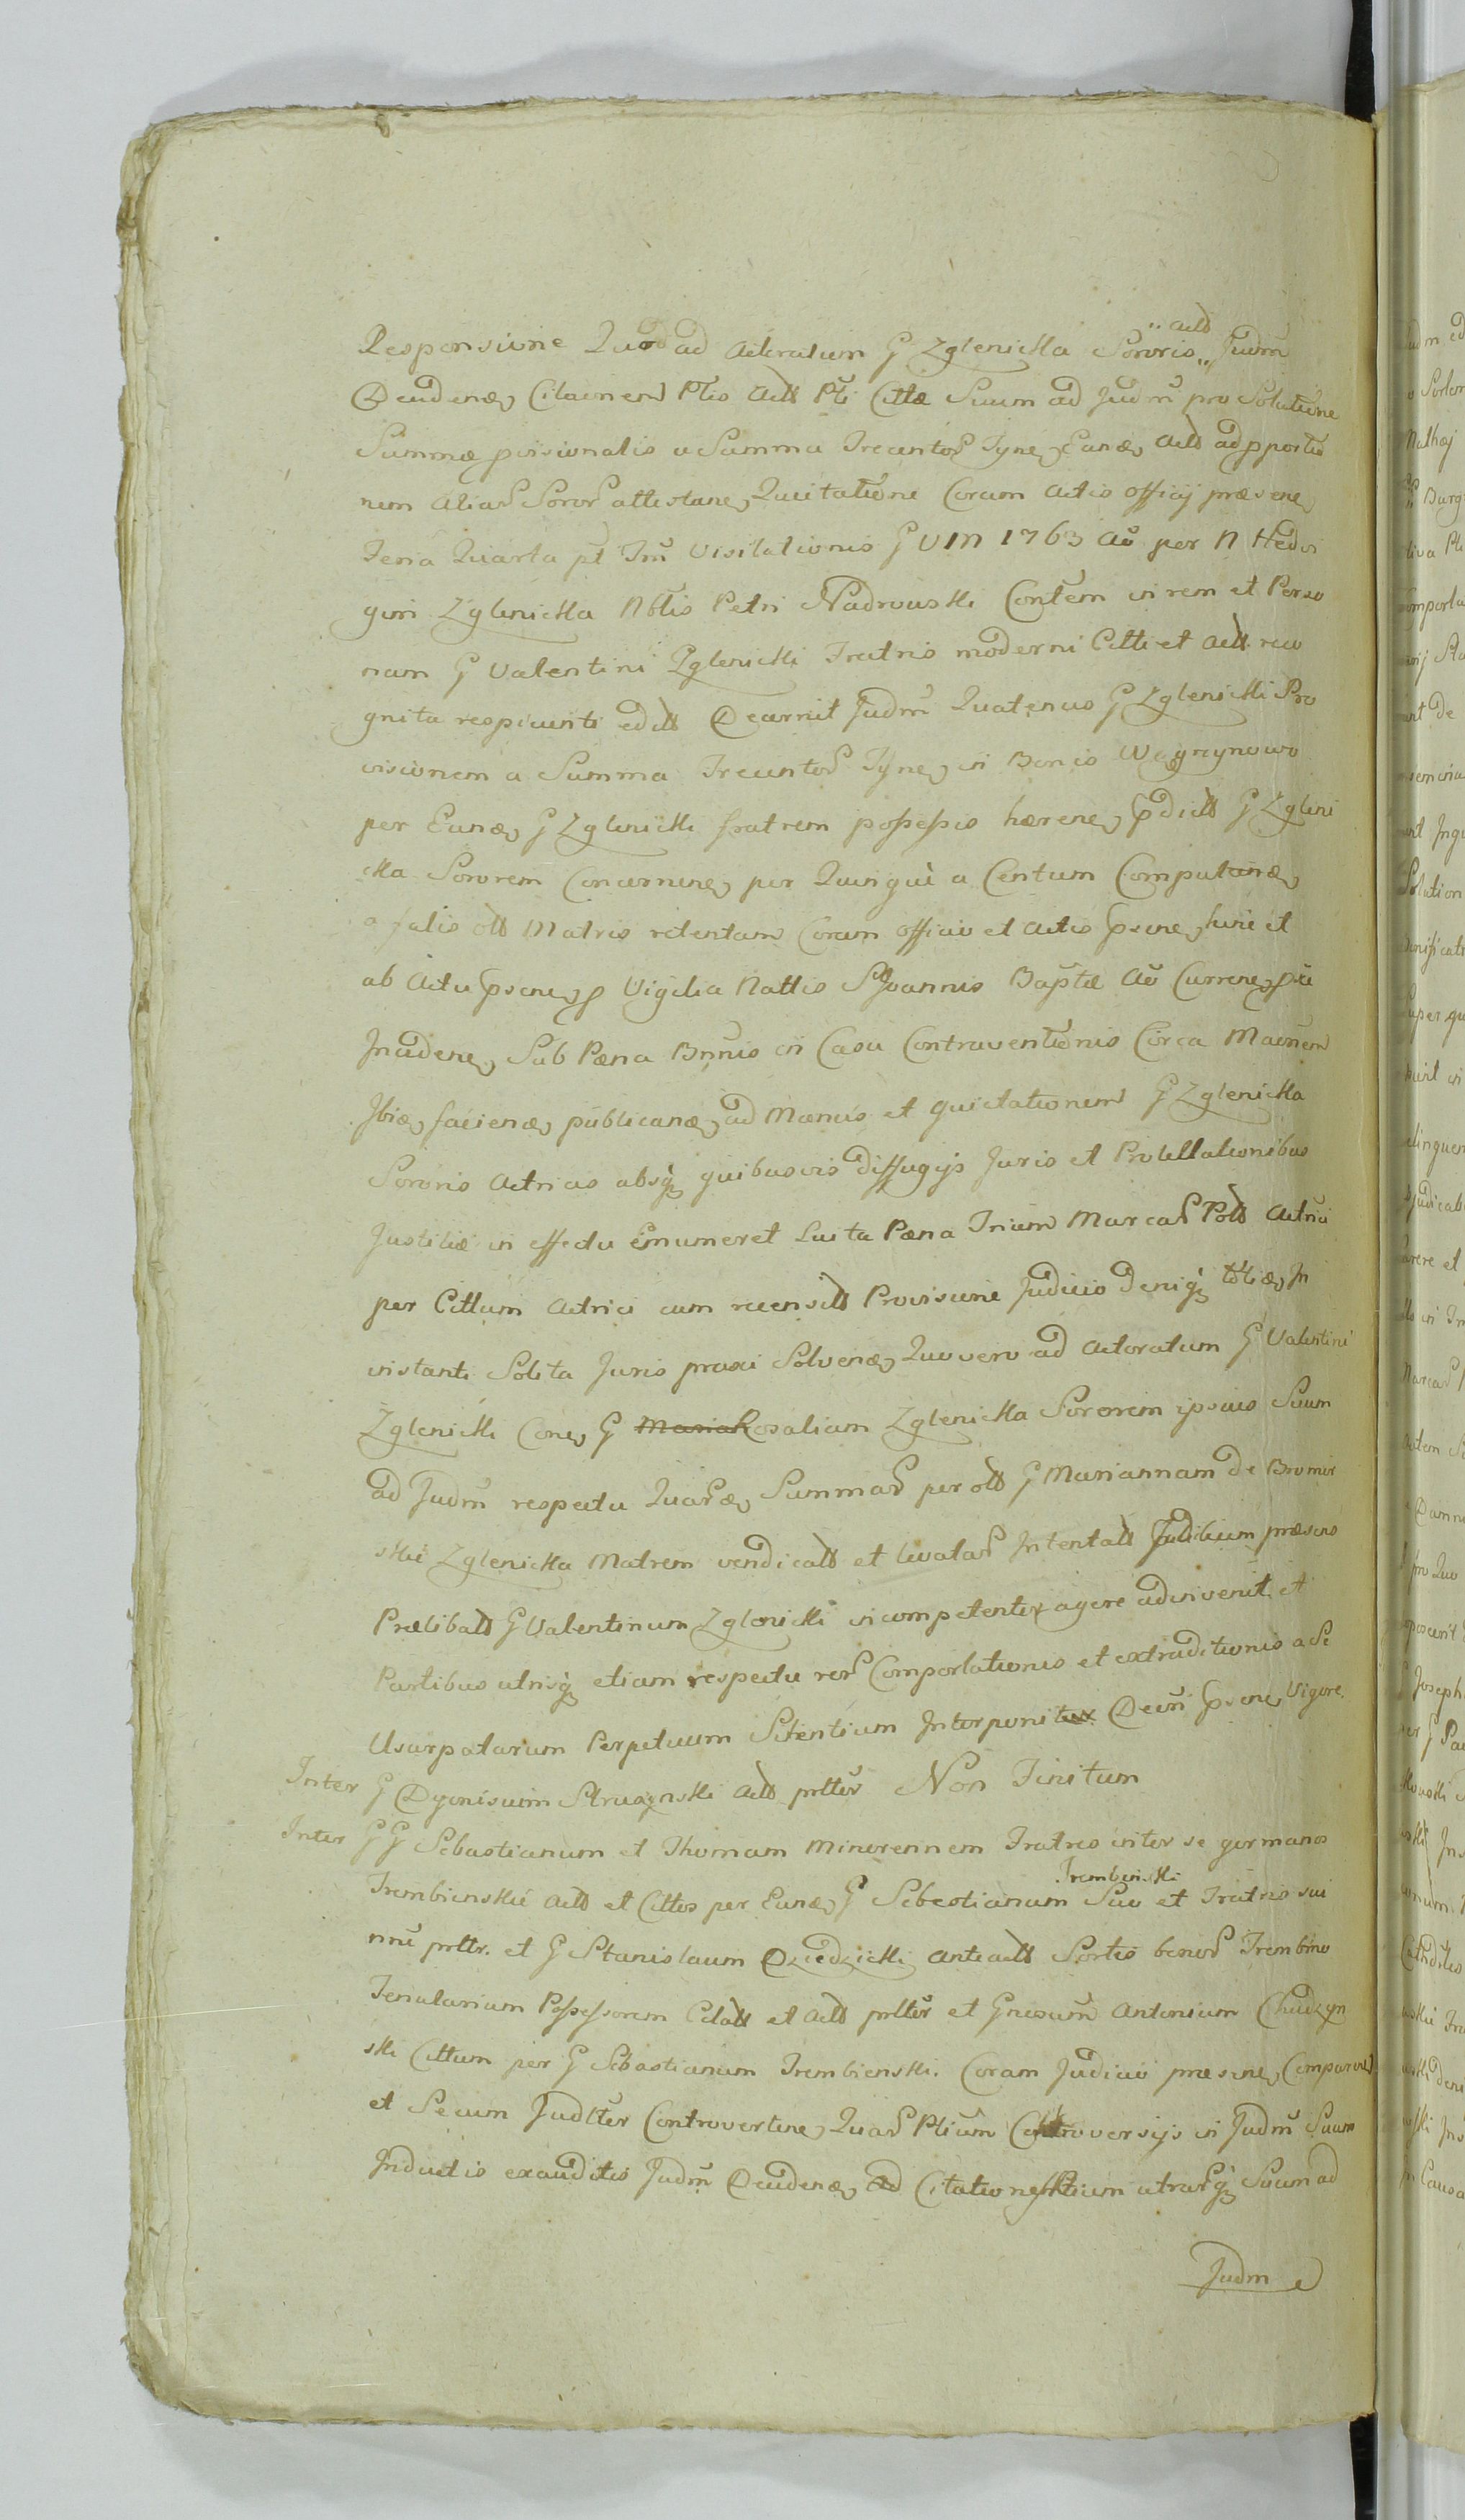 Responsione Quo ad Actoratum G Zglenicka Sororis „ Actt „ Judm̃
Decidenđ Citaonem Ptis Actt Pti Cittæ Suum ad Judm̃ pro Solutione
Summæ provisionalis a Summa Trecentor̃ Tynf, Eund, Actt ad pportio
nem aliar̃ Soror̃ attestanť, Quietatione Coram Actis officij præsenť,
Feria Quarta pt Fm̃ Visitationis G VIM 1763 Ao per N Hedvi
gim Zglenicka Nbtis Petri Nadrowski Contem in rem et Perso
nam G Valentini Zglenicki Fratris moderni Citti et Actt reco
gnita respicienti editt Decernit Judm̃ Quatenus G Zglenicki Pro
visionem a Summa Trecentor̃ Tynf, in Bonis Węgrzynowo
per Eund, G Zglenicki fratrem possessis hærenť, pdictt G Zgleni
cka Sororem Concernenť, per Quinque a Centum Computand,
a fatis ott Matris retentam Coram officio et Actis psenť, hinc et
ab Actu psenť, p Vigilia Nattis S Joannis Baptæ Ao Currenť,
Incidenť, Sub Pæna Bnnis in Casu Contraventionis Circa Maonem
Ibid, faciend, publicand, ad Manus et quietationem G Zglenicka
Sororis Actricis absq; quibusvis diffugijs Juris et Protestationibus
Justitiæ in effectu Enumeret Luita Pæna Trium Marcar̃ Pott Actrici
per Cittum Actrici cum recensitt Provisione Judicio deniq; totid, In
instanti Solita Juris praxi Solvend, Quo vero ad Actoratum G Valentini
Zglenicki Cone, G Rosaliam Zglenicka Sororem ipsius Suum
ad Judm̃ respectu Quarund, Summar̃ per ott G Mariannam de Bromir
skie Zglenicka Matrem vendicatt et levatar̃ Intentatt Judicium præsens
Prælibatt G Valentinum Zglenicki incompetenter agere adinvenit et
Partibus utrisq; etiam respectu rer̃ Comportationis et extraditionis a Se
Usurpatarum Perpetuum Silentium Interponit Decri psenť, Vigore.
Inter G Dyonisium Struzynski Actt prltr̃ Non Finitum
Inter GG Sebastianum et Thomam Minorennem Fratres inter se germanos
Trembienskie Actt et Cittos per Eund, G Sebestianum Trembinski Suo et Fratris sui
nne prltr. et G Stanislaum Dziedzicki anteactt Sortis bonor̃ Trembino
Tenutarium Possessorem Citatt et Actt prltr̃ et Gnesum Antonium Chudzyn
ski Cittum per G Sebastianum Trembienski. Coram Judicio præsenť, Comparenť
et Secum Judltr̃ Controvertenť, Quar̃ Ptium Controversijs in Judm̃ Suum
Inductis exauditis Judm̃ Decidend, ad Citationes Ptium utrarq; Suum ad
Judm